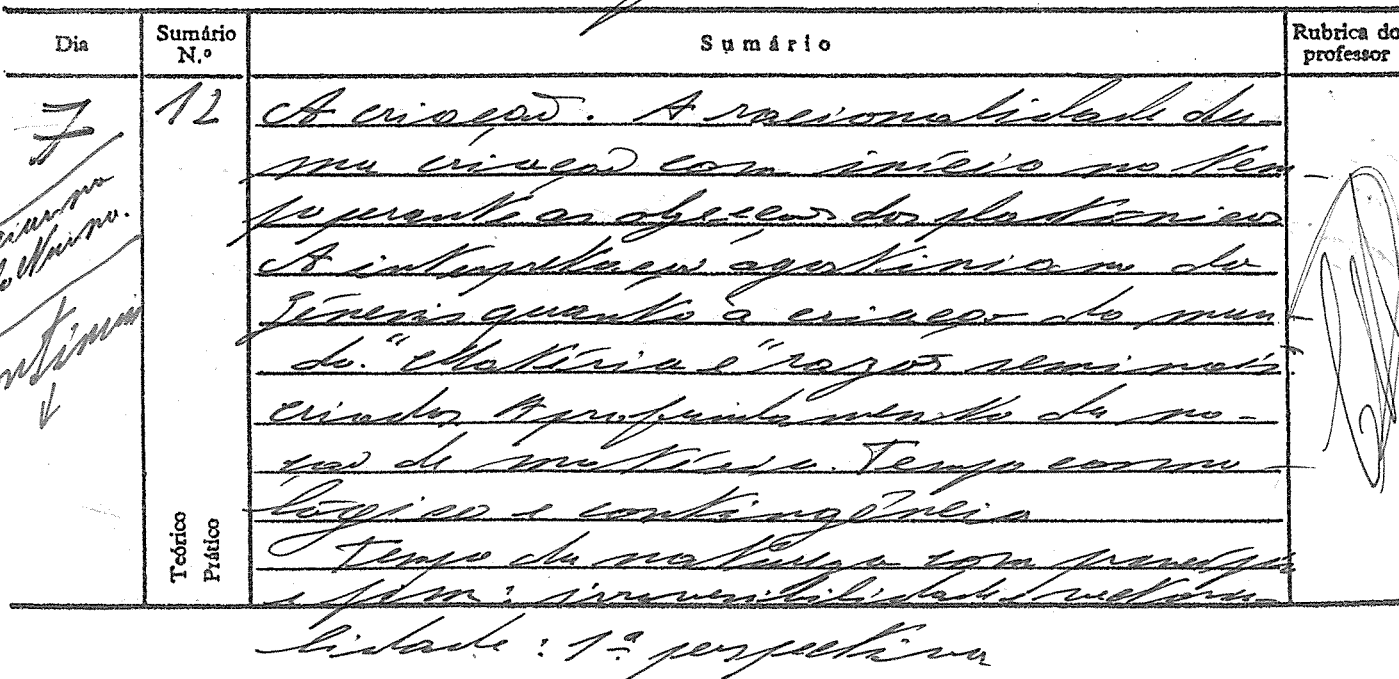 Dia
Sumário N.º
Sumário
Rubrica do professor
7
12
A criação. A racionalidade du-
ma criação com início no tem
po perante as objecções dos platónicos
A interpretação agostiniana do
Génesis quanto à criação do mun
do. "Matéria e "razões seminais
criadas. Aprofundamento da no-
ção de matéria. Tempo cosmo
lógico e contingência
Tempo da natureza com princípio
e fim: irreversibilidade, vectoria-
lidade: 1ª perspectiva
Teórico
Prático